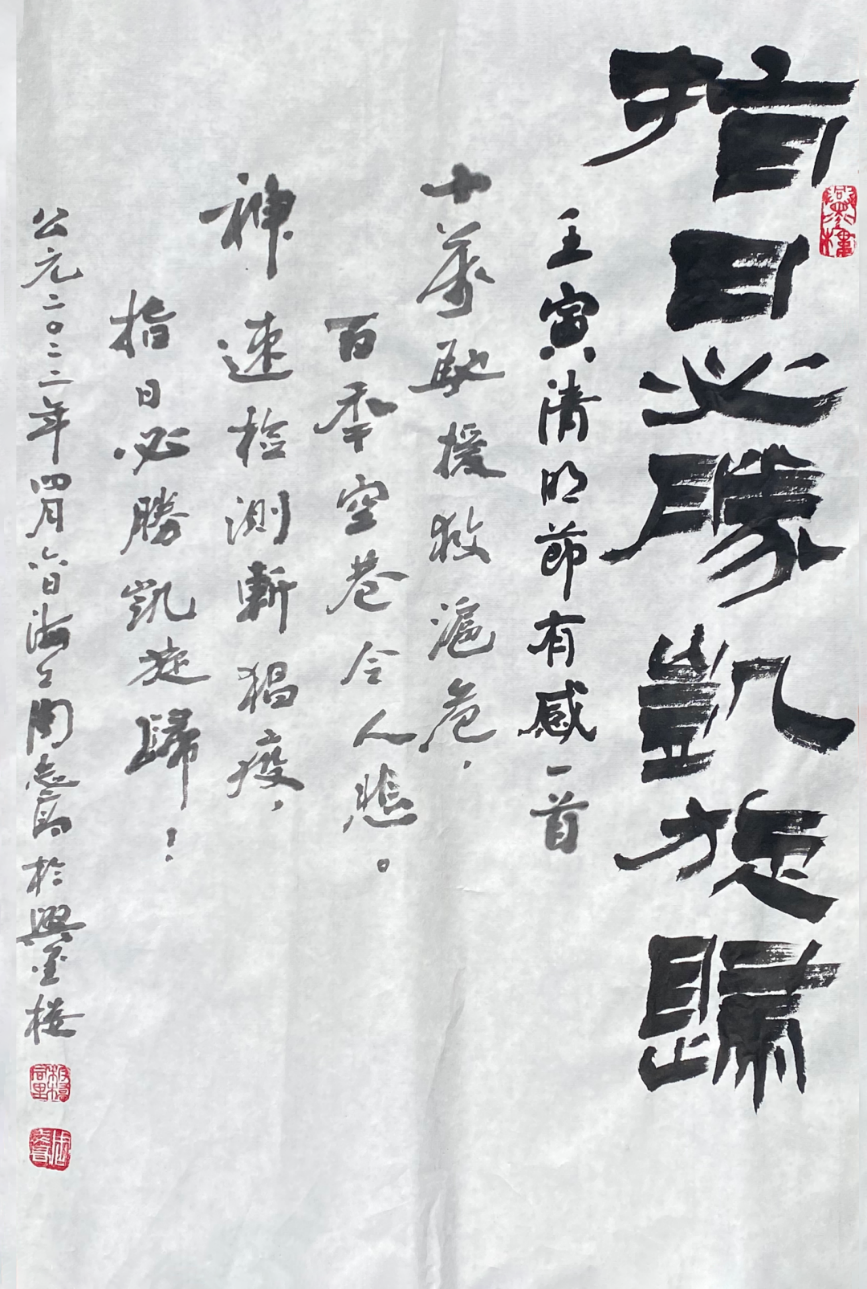 指日必勝凱旋歸
壬寅清明節有感一首
十萬馳援救滬危，
百季空巷令人悲。
神速检測斬猖疫，
指日必勝凱旋歸！
公元二〇二二年四月六日海上周志高於興墨楼